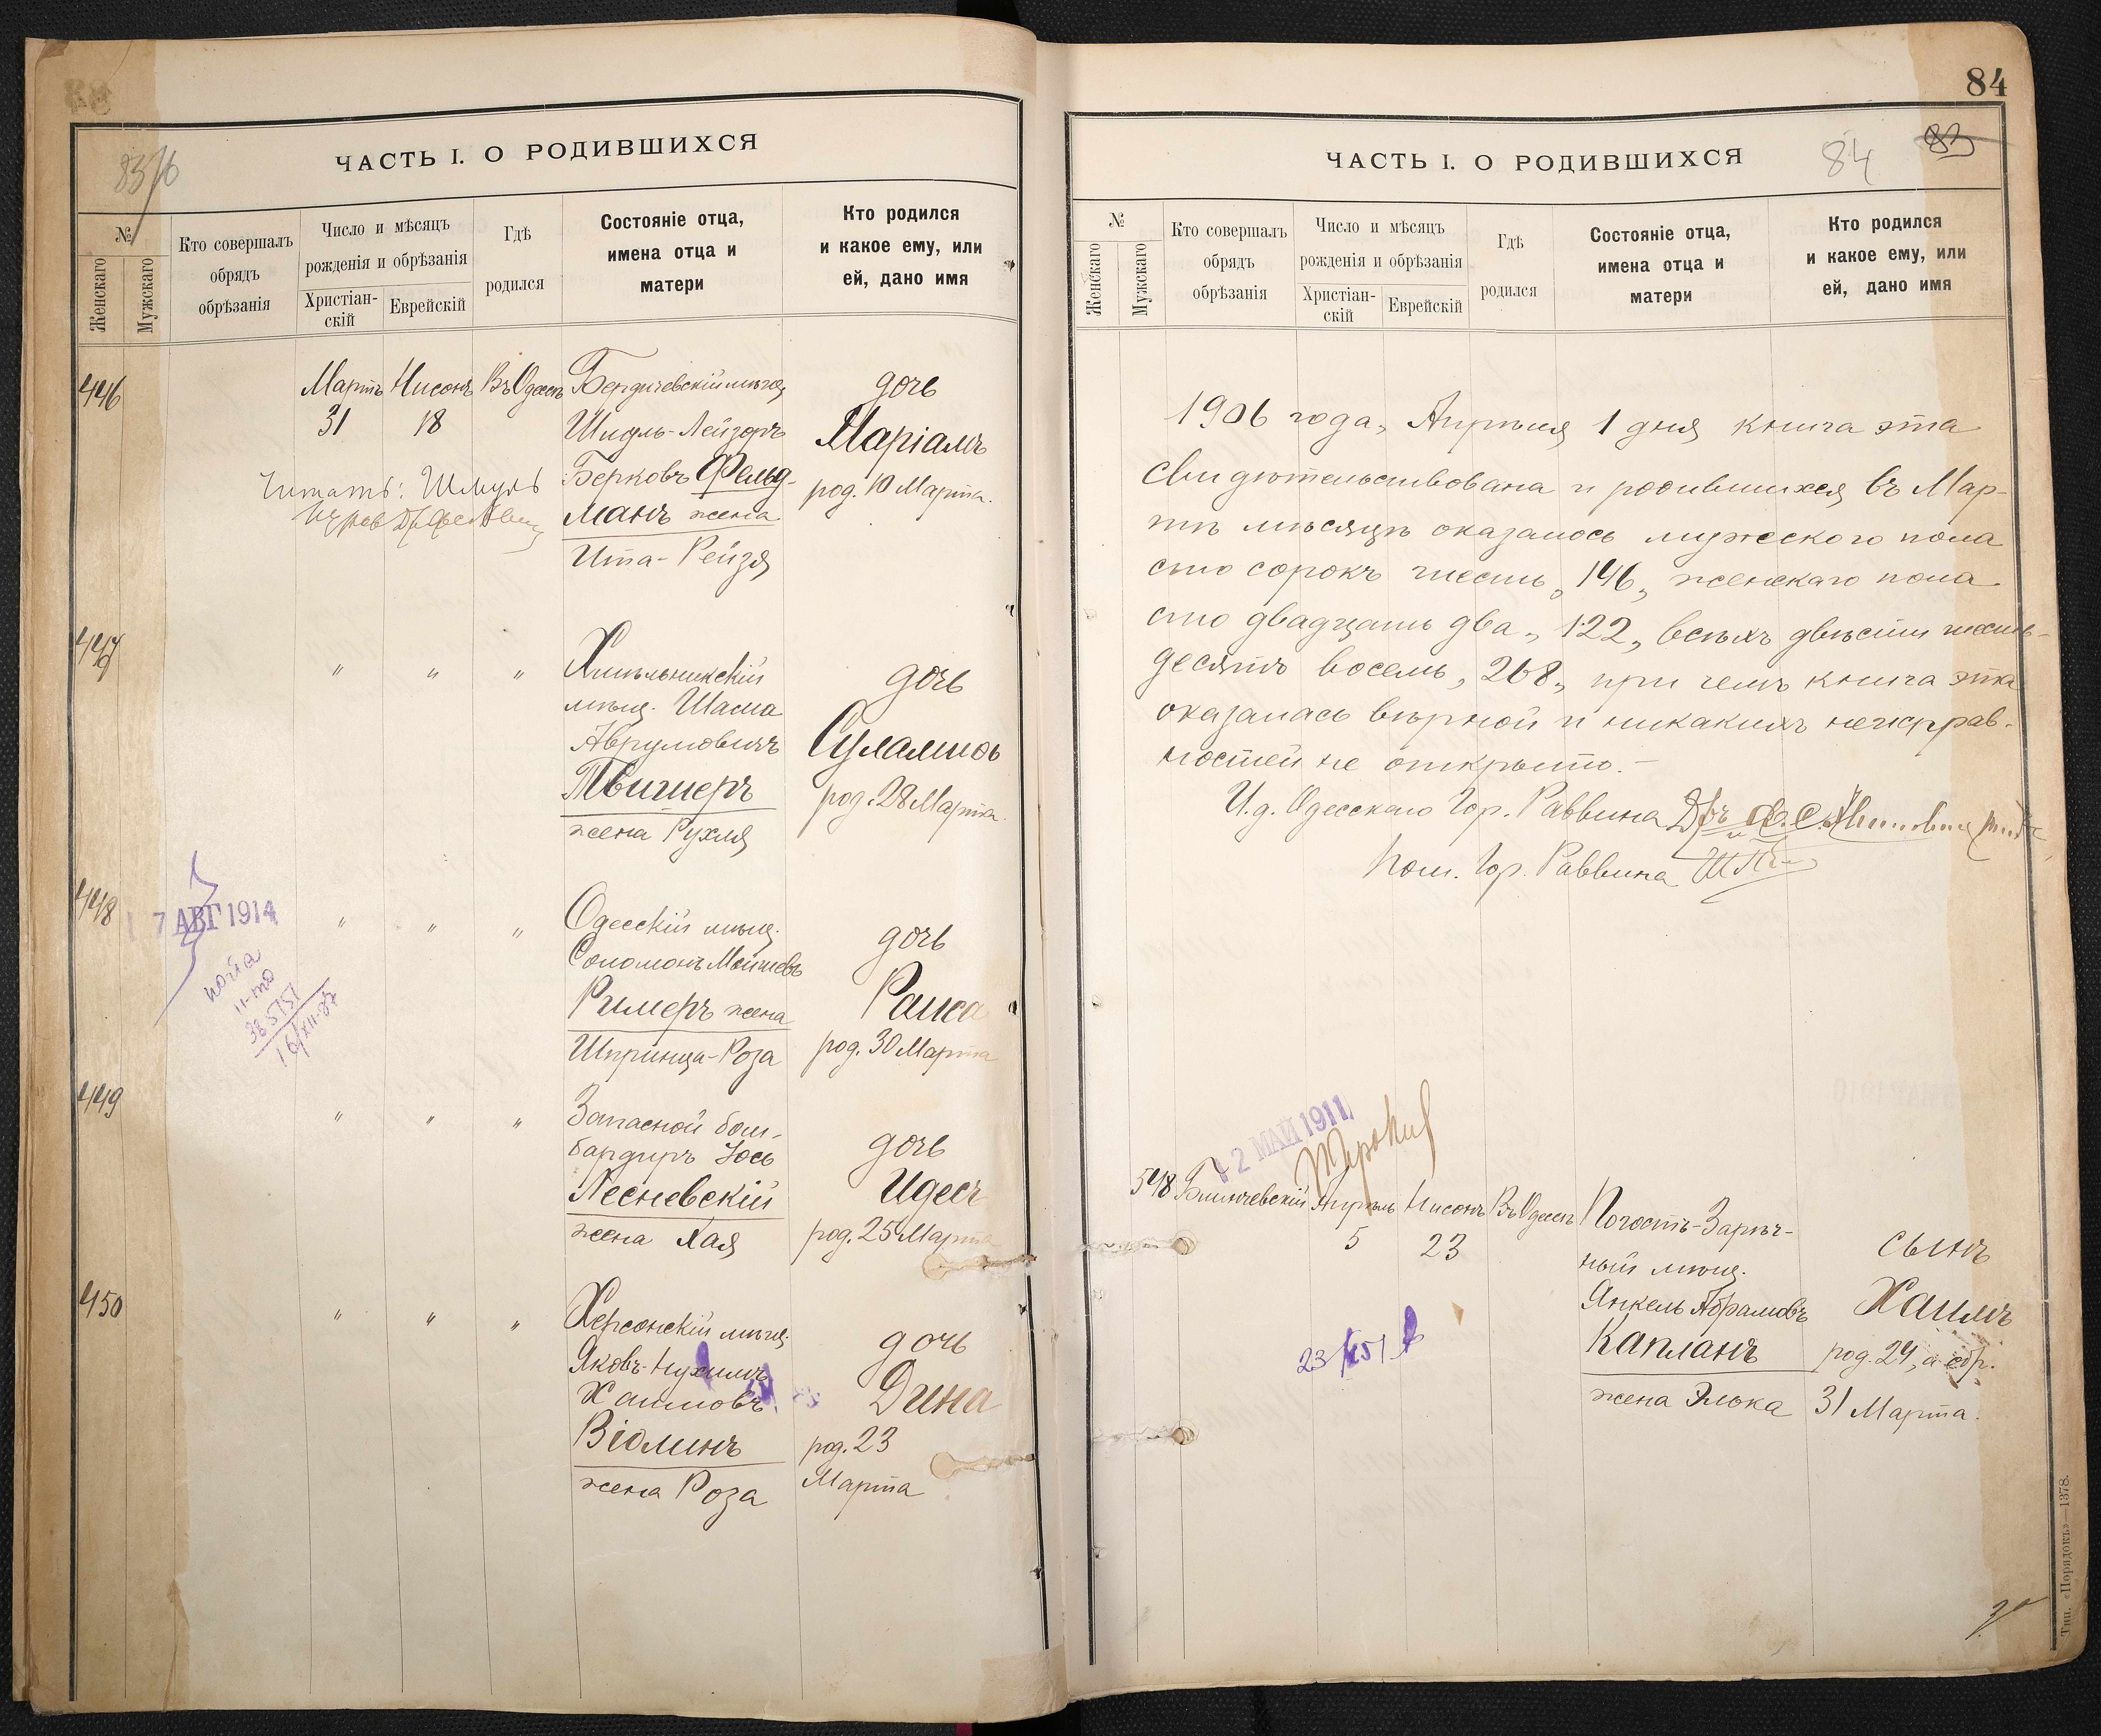 83
ЧАСТЬ I. О РОДИВШИХСЯ
№
Женскаго
Мужскаго
Кто совершалъ
обрядъ
обрѣзанія
Число и мѣсяцъ
рожденія и обрѣзанія
Христіан-
скій
Еврейскій
Гдѣ
родился
Состояніе отца,
имена отца и
матери
Кто родился
и какое ему, или
ей, дано имя
446
Мартъ Нисонъ Въ Одессѣ
31 18
Бердичевскій мѣщ.
Шмуль-Лейзоръ
Берковъ Фельд-
манъ жена
Ита-Рейзя
дочь
Маріамъ
род. 10 Марта.
Читать: Шмуль
447
" " "
Хмѣльникскій
мѣщ. Шасма
Аврумовичъ
Твигнеръ
жена Рухля
дочь
Суламиѳь
род. 28 Марта.
448
7 АВГ 1914
" " "
Одесскій мѣщ.
Соломонъ Мошковъ
Римеръ жена
Шпринца-Роза
дочь
Раиса
род. 30 Марта
449
" " "
Запасной бом-
бардиръ Іось
Лесневскій
жена Хая
дочь
Идесъ
род. 25 Марта
450
" " "
Херсонскій мѣщ.
Яковъ-Нухимъ
Хаимовъ
Віолинъ
жена Роза
дочь
Дина
род. 23
Марта
84
84 83
ЧАСТЬ I. О РОДИВШИХСЯ
№
Женскаго
Мужскаго
Кто совершалъ
обрядъ
обрѣзанія
Число и мѣсяцъ
рожденія и обрѣзанія
Христіан-
скій
Еврейскій
Гдѣ
родился
Состояніе отца,
имена отца и
матери
Кто родился
и какое ему, или
ей, дано имя
1906 года, Апрѣля 1 дня книга эта
свидѣтельствована и родившихся въ Мар-
тѣ мѣсяцѣ оказалось мужеского пола
сто сорокъ шесть „146„ женскаго пола
сто двадцать два „122„ всѣхъ двѣсти шесть-
десятъ восемь „268„ при чемъ книга эта
оказалась вѣрной и никакихъ неисправ-
ностей не открыто.-
И.д. Одесскаго Гор. Раввина Д-ръ
Пом. Гор. Раввина
2 МАЙ 1911
548 Блинчевскій Апрѣль Нисонъ Въ Одессѣ
5 23
Погостъ-Зарѣч-
ный мѣщ.
Янкель Абрамовъ
Капланъ
жена Элька
сынъ
Хаимъ
род. 24, а обр.
31 Марта.
Тип. «Порядокъ»—1378.